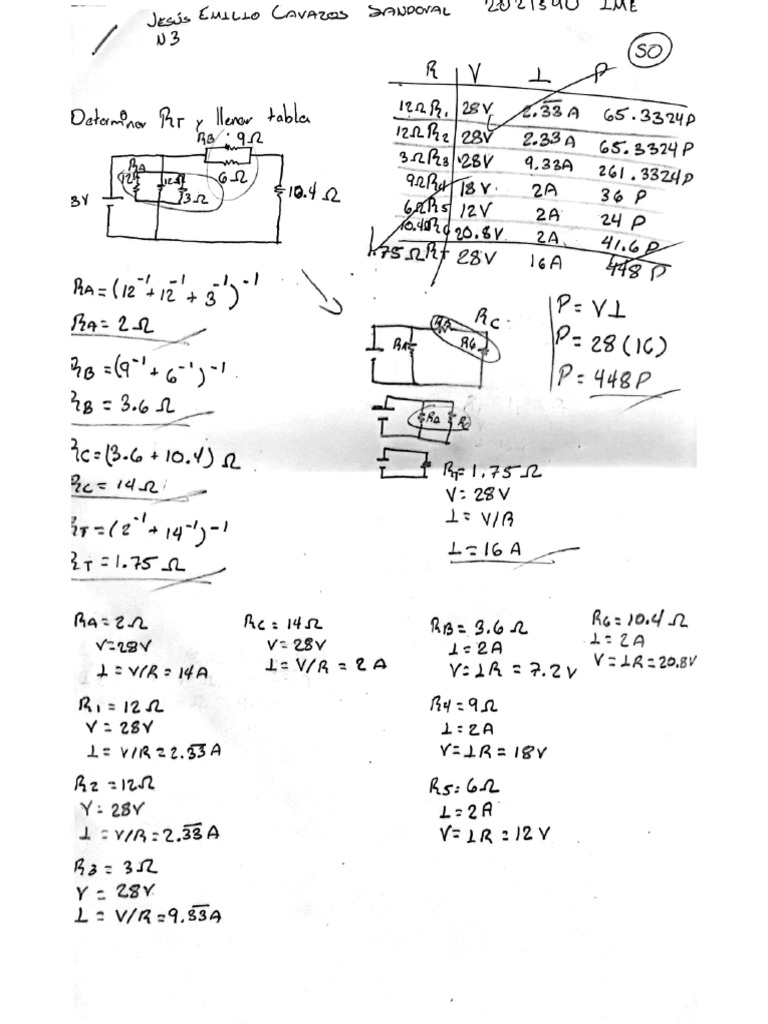 JESÚS EMILIO CAVAZOS SANDOVAL 2021390 IME
N3
50
Determinar RT y llenar tabla
RB 9Ω
RA
12Ω 12Ω 3Ω
6Ω
10.4Ω
8V
R V I P
12Ω R1 28V 2.33 A 65.3324P
12Ω R2 28V 2.33 A 65.3324 P
3Ω R3 28V 9.33A 261.3324P
9Ω R4 18V. 2A 36 P
6Ω R5 12V 2A 24 P
10.4Ω R6 20.8V. 2A 41.6 P
1.75Ω RT 28V 16A 448 P
RA=(12⁻¹+12⁻¹+3⁻¹)⁻¹
RA=2Ω
RB=(9⁻¹+6⁻¹)⁻¹
RB=3.6Ω
RC=(3.6+10.4)Ω
RC=14Ω
RT=(2⁻¹+14⁻¹)⁻¹
RT=1.75Ω
RC
RB
RA R6
RA RC
P=VI
P=28(16)
P=448P
RT=1.75Ω
V=28V
I=V/R
I=16A
RA=2Ω
V=28V
I=V/R=14A
RC=14Ω
V=28V
I=V/R=2A
RB=3.6Ω
I=2A
V=IR=7.2V
R6=10.4Ω
I=2A
V=IR=20.8V
R1=12Ω
V=28V
I=V/R=2.33A
R4=9Ω
I=2A
V=IR=18V
R2=12Ω
V=28V
I=V/R=2.33A
R5=6Ω
I=2A
V=IR=12V
R3=3Ω
V=28V
I=V/R=9.33A